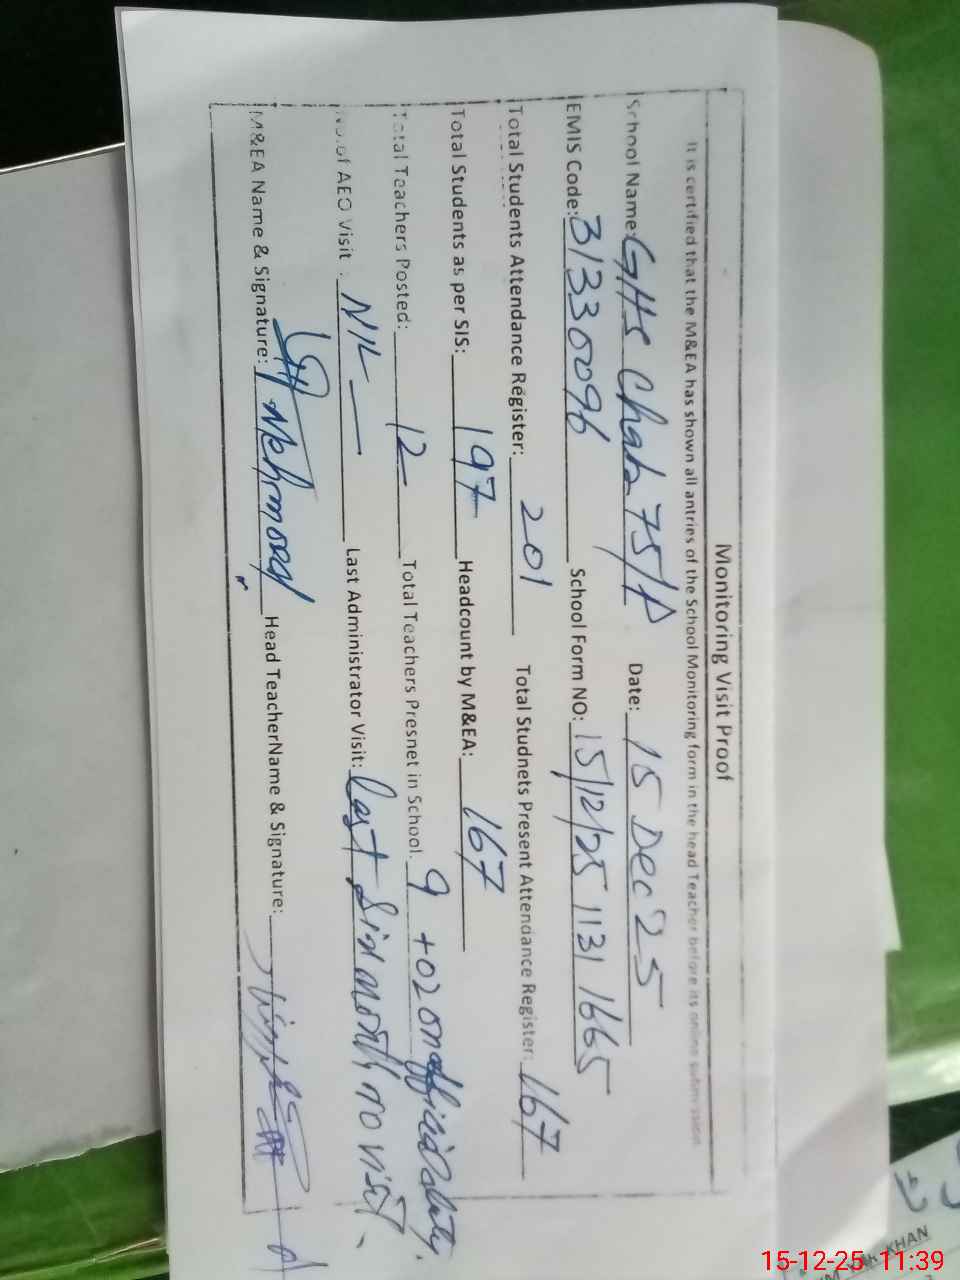 Monitoring Visit Proof
It is certified that the M&EA has shown all antries of the School Monitoring form in the head Teacher before its online submission
School Name: GHS Chak 75/P Date: 15 Dec'25
EMIS Code: 31330096 School Form NO: 15/12/25 1131 1665
Total Students Attendance Register: 201 Total Studnets Present Attendance Register: 167
Total Students as per SIS: 197 Headcount by M&EA: 167
Total Teachers Posted: 12 Total Teachers Presnet in School. 9 +02 on official duty.
No.of AEO Visit : NIL Last Administrator Visit: last Six month no visit.
M&EA Name & Signature: Mehmood Head TeacherName & Signature:
KHAN
15-12-25 11:39